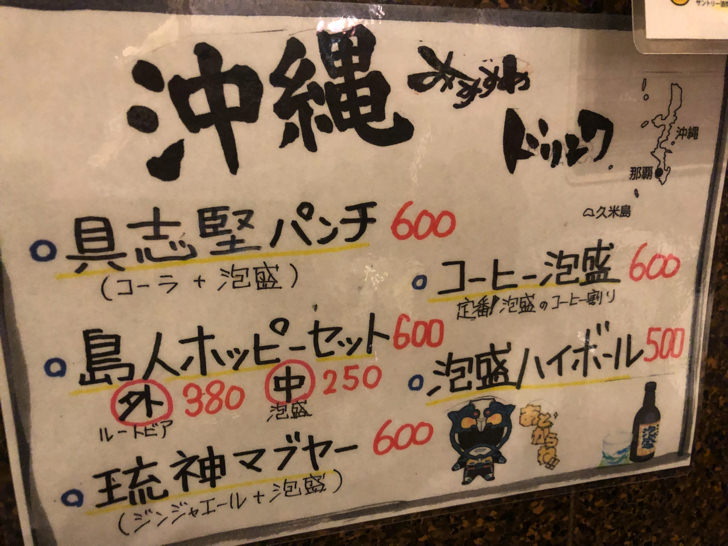 沖縄 おすすめ
ドリンク
沖縄
那覇
久米島
具志堅パンチ 600
(コーラ + 泡盛)
コーヒー泡盛 600
定番!泡盛のコーヒー割り
島人ホッピーセット 600
外 380 中 250
ルートビア 泡盛
泡盛ハイボール 500
琉神マブヤー 600
(ジンジャエール + 泡盛)